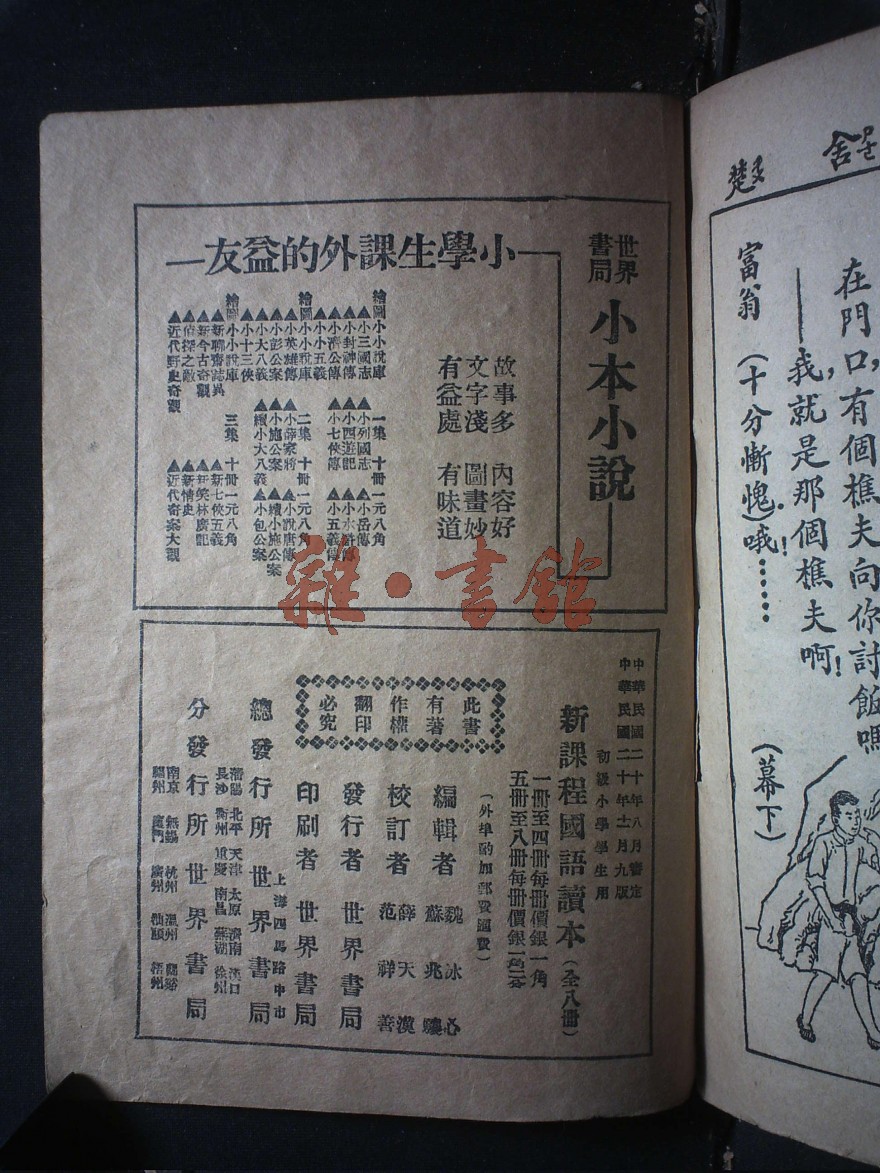 世界書局
小本小說
小學生課外的益友
故事多 內容好
文字淺 圖畫妙
有益處 有味道
繪圖小小說庫 一集 十冊 一元八角
▲小三國志 ▲小列國志 ▲小岳傳
▲小封神傳 ▲小西遊記 ▲小水滸傳
▲小濟公傳 ▲小七俠傳 ▲小五義傳
▲小小五義
繪圖小小說庫 二集 十冊 一元八角
▲小英雄傳 ▲小薛家將 ▲小說唐傳
▲小彭公案 ▲小施公案 ▲續小施公案
▲小大八義 ▲續小大八義 ▲小包公案
▲小十三俠
繪圖小小說庫 三集 十冊 一元八角
▲新聊齋誌異 ▲新七俠五義
▲新今古奇觀 ▲新笑林廣記
▲偵探之敵 ▲新情史
▲近代野史奇觀 ▲近代奇案大觀
中華民國二十年八月審定
中華民國二十年十二月九版
初級小學學生用
新課程國語讀本(全八冊)
一冊至四冊每冊價銀一角
五冊至八冊每冊價銀一角二分
(外埠酌加郵費匯費)
此書
有著
作權
翻印
必究
編輯者 魏冰心 蘇兆驤
校訂者 薛天漢 范祥善
發行者 世界書局
印刷者 世界書局
上海四馬路中市
總發行所 世界書局
瀋陽 北平 天津 太原 濟南 漢口
長沙 衢州 重慶 南昌 蕪湖 徐州
分發行所 世界書局
南京 無錫 杭州 溫州 蘭谿
福州 廈門 廣州 汕頭 梧州
雜·書館
在門口,有個樵夫向你討飯嗎!
——我,就是那個樵夫啊!
富翁 (十分慚愧)哦!……
(幕下)